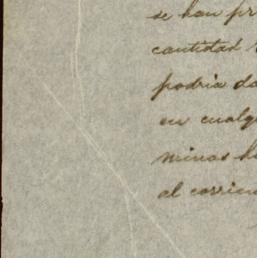 se han pr
cantidad
podria da
en cualq
minas ha
al corrien